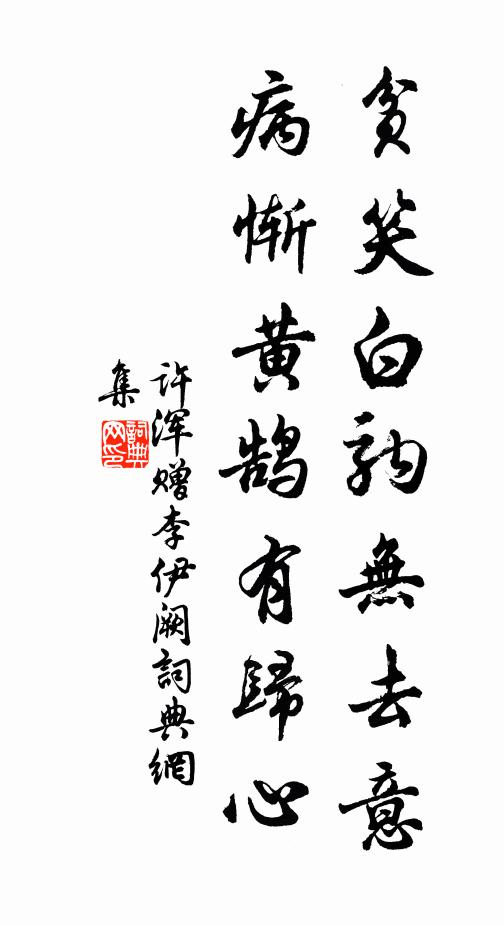 貧笑白駒無去意
病慚黄鵠有歸心
許渾贈李伊闕詞典網
集
詞典
网印